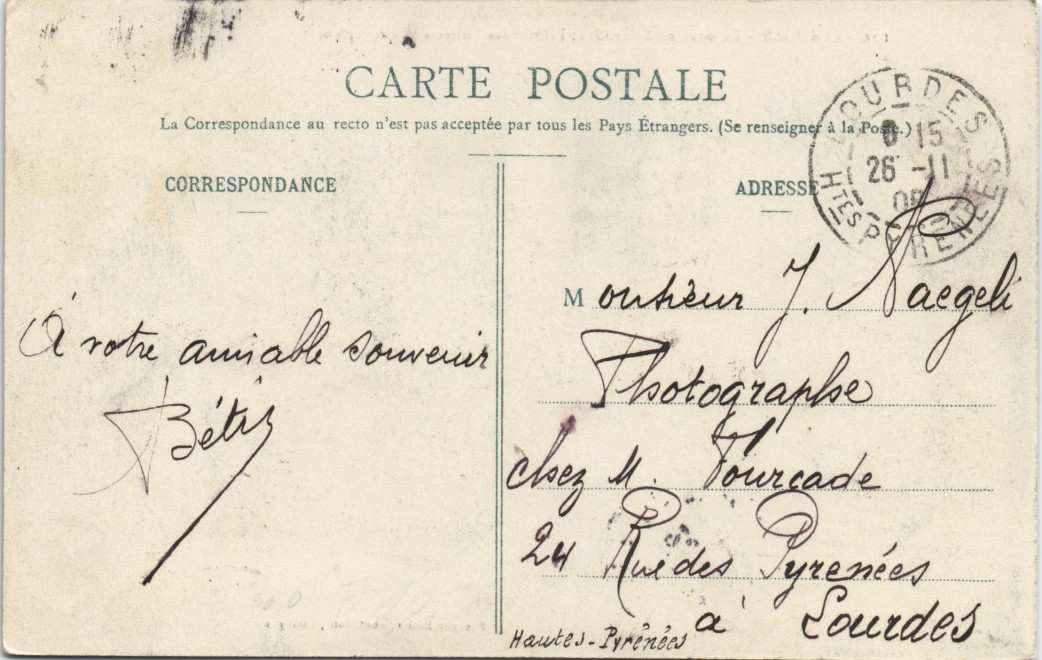 CARTE POSTALE
La Correspondance au recto n'est pas acceptée par tous les Pays Étrangers. (Se renseigner à la Poste.)
CORRESPONDANCE
ADRESSE
LOURDES
15
26 -11
HTES PYRENEES
À votre amiable souvenir
Monsieur J. Naegeli
Photographe
chez M. Fourcade
24 Rue des Pyrenées
à Lourdes
Hautes-Pyrénées